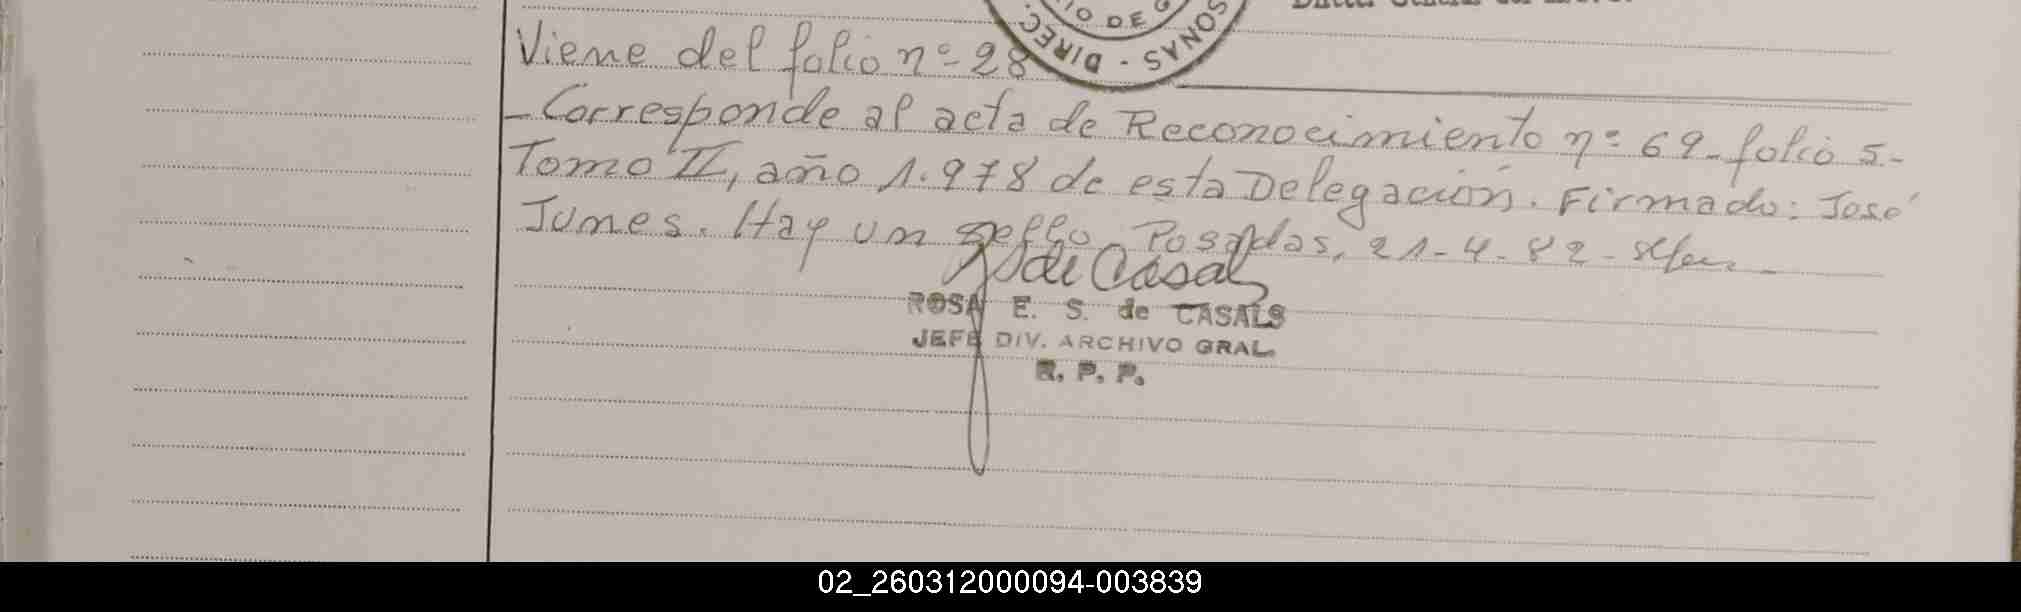 IO DE G
DIREC
SONAS -
Viene del folio nº 28
- Corresponde al acta de Reconocimiento nº 69 - folio 5 -
Tomo II, año 1.978 de esta Delegación. Firmado: José
Jumes. Hay un sello. Posadas, 21-4-82 -
de Casals
ROSA E. S. de CASALS
JEFE DIV. ARCHIVO GRAL.
R. P. P.
02_260312000094-003839